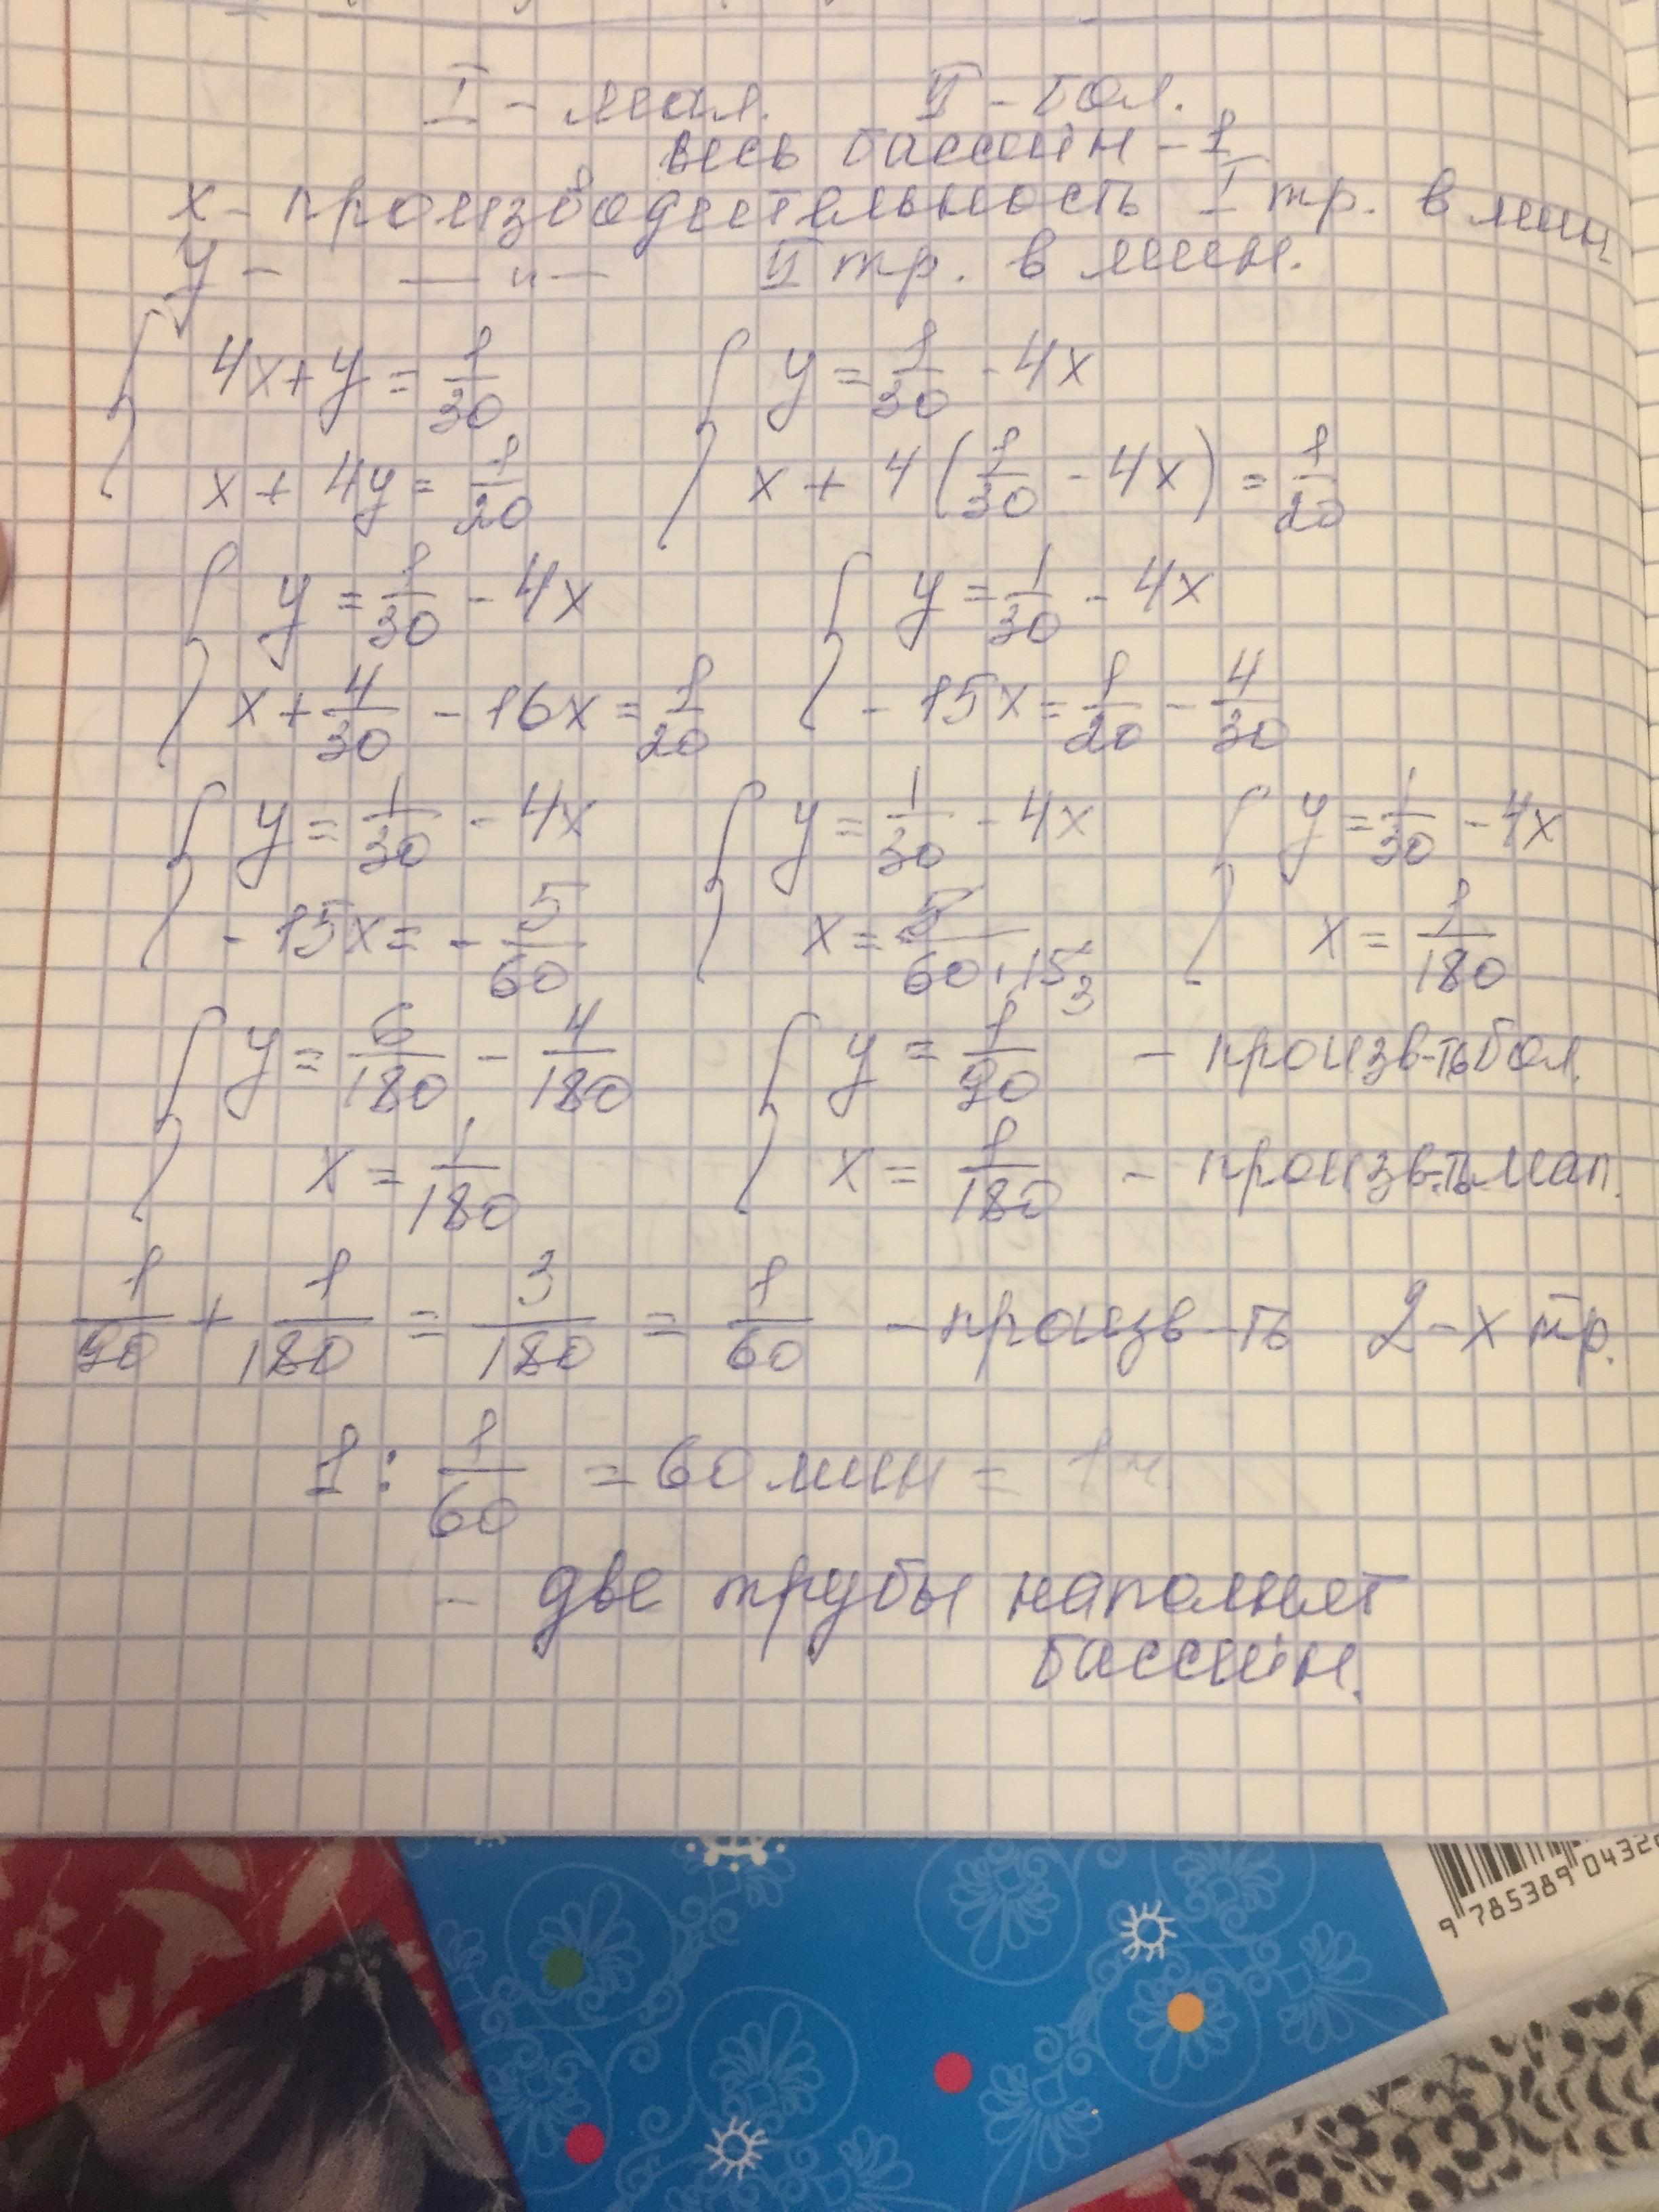 I - мал. II - бол.
весь бассейн - 1
x - производительность I тр. в мин
y - — и — II тр. в мин.
{ 4x + y = 1/30 { y = 1/30 - 4x
x + 4y = 1/20 x + 4(1/30 - 4x) = 1/20
{ y = 1/30 - 4x { y = 1/30 - 4x
x + 4/30 - 16x = 1/20 - 15x = 1/20 - 4/30
{ y = 1/30 - 4x { y = 1/30 - 4x { y = 1/30 - 4x
- 15x = - 5/60 x = 5/60·15 3 x = 1/180
{ y = 6/180 - 4/180 { y = 1/90 - произв-ть бол.
x = 1/180 x = 1/180 - произв-ть мал.
1/90 + 1/180 = 3/180 = 1/60 - произв-ть 2-х тр.
1 : 1/60 = 60 мин = 1 ч.
- две трубы наполнят
бассейн.
9 785389 0432